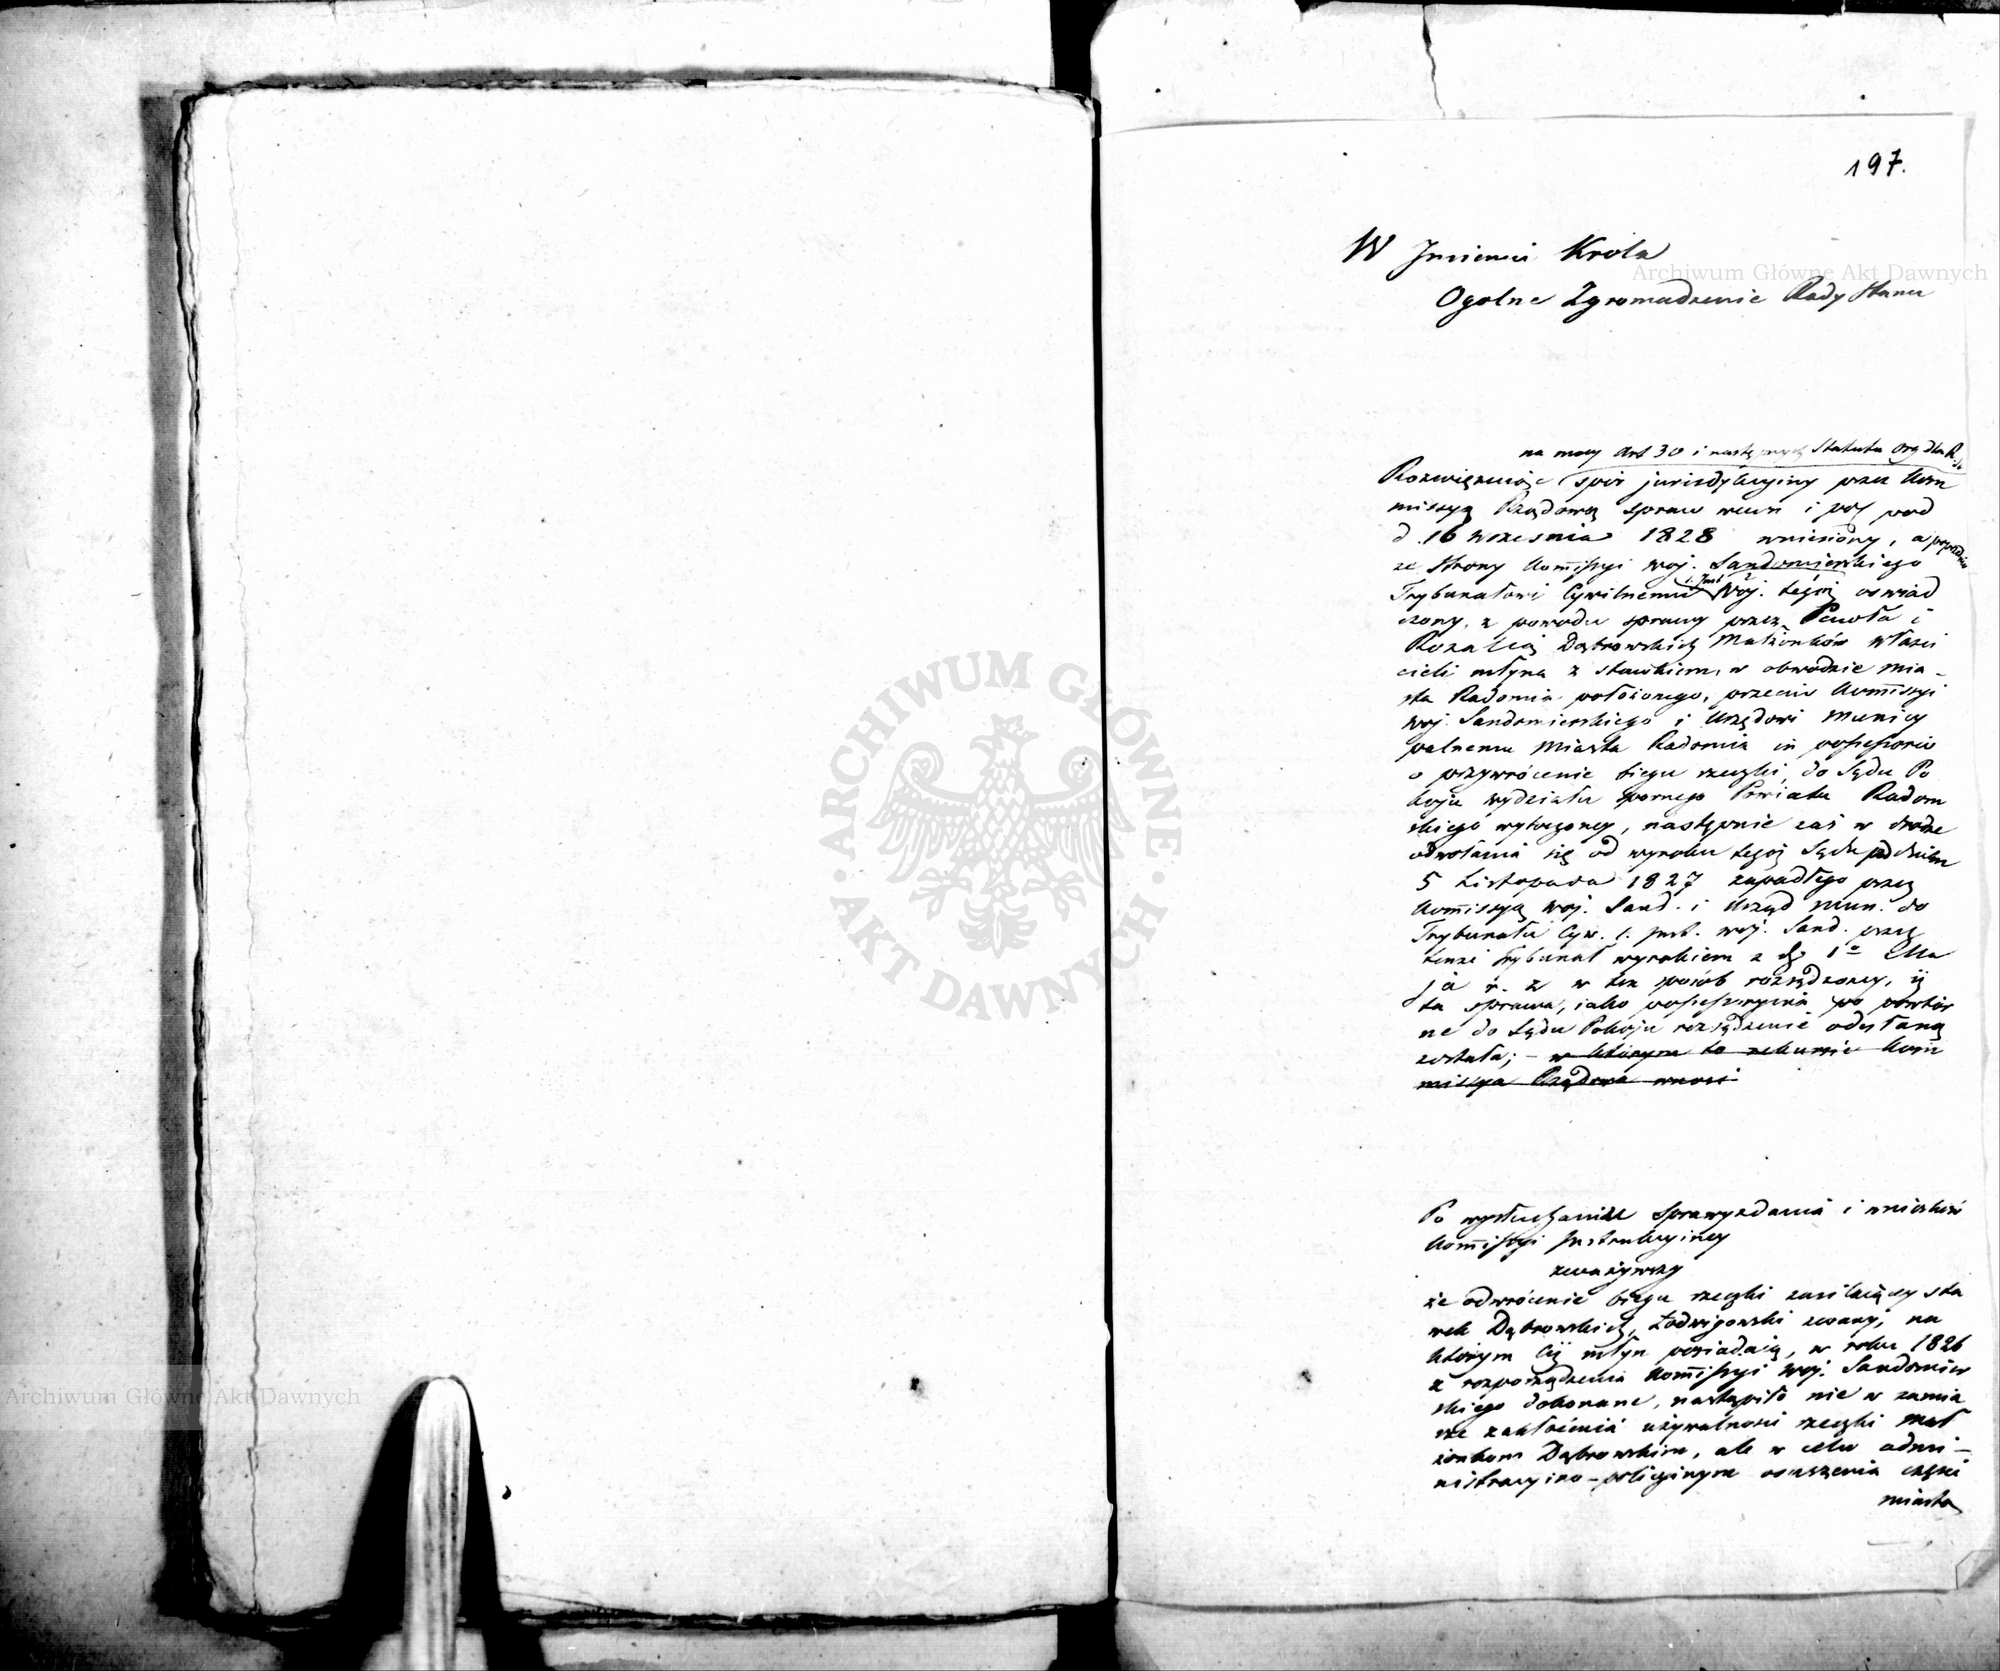 197.
W Imieniu Króla
Ogólne Zgromadzenie Rady Stanu
na mocy Art 30 i następnych Statutu Org dla R. St
Rozwiązuiąc spór jurisdykcyiny przez Kom
missyą Rządową spraw wewn i pol pod
d. 16 Wrzesnia 1828 wniesiony, a poprzednio
ze Strony Kommissyi woj. Sandomierskiego
Trybunałowi Cywilnemu 1. Inst. Woj. tegoż oswiad
czony, z powodu sprawy przez Pawła i
Rozalią Dąbrowskich Małżonków właści
cieli młyna z stawkiem, w obwodzie mia-
sta Radomia położonego, przeciw Kommissyi
Woj. Sandomierskiego i Urzędowi Municy
palnemu Miasta Radomia in possessorio
o przywrócenie biegu rzeczki, do Sądu Po
koju wydziału spornego Powiatu Radom
skiego wytoczoney, następnie zaś w drodze
odwołania się od wyroku tegoż Sądu pod dniem
5 Listopada 1827 zapadłego przez
Kommissyą Woj. Sand. i Urząd Mun. do
Trybunału Cyw. 1. Inst. woj. Sand. przez
tenże Trybunał wyrokiem z d. 1º Ma
ja r. z w ten sposób rozsądzoney, iż
ta sprawa, iako possessoryina po powtór
ne do Sądu Pokoju rozsądzenie odesłaną
została; – w którym to rekursie Kom
missya Rządowa wnosi
Po wysłuchaniu Sprawozdania i wniosków
Kommissyi Instrukcyiney
zważywszy
że odwrócenie biegu rzeczki zasilaiącey sta
wek Dąbrowskich, zwany, na
którym Ciż młyn posiadaią, w roku 1826
z rozporządzenia Kommissyi Woj. Sandomier
skiego dokonane, nastąpiło nie w zamia
rze zakłócenia używalności rzeczki Mał
żonkom Dąbrowskim, ale w celu admi-
nistracyino-policyinym osuszenia części
miasta
Archiwum Główne Akt Dawnych
Archiwum Główne Akt Dawnych
ARCHIWUM GŁÓWNE · AKT DAWNYCH ·